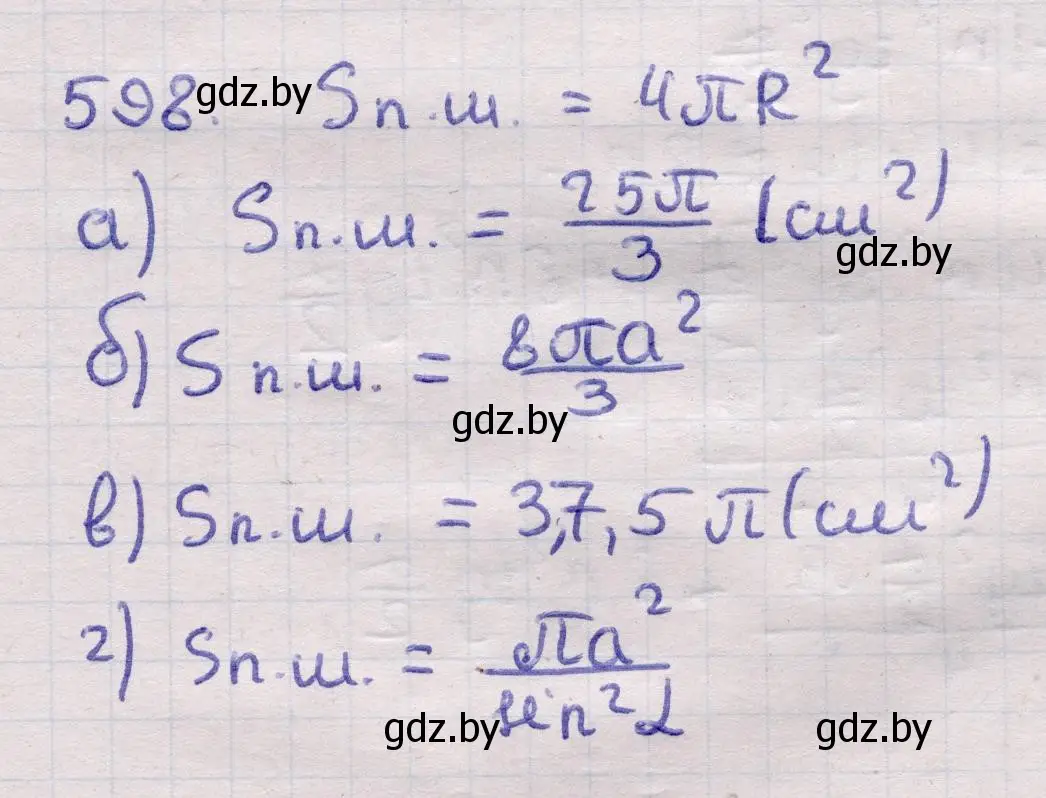 598. gdz.by Sп.ш. = 4πR²
а) Sп.ш. = 25π/3 (см²)
gdz.by
б) Sп.ш. = 8πa²/3
gdz.by
в) Sп.ш. = 37,5π (см²)
г) Sп.ш. = πa²/sin²α
gdz.by gdz.by